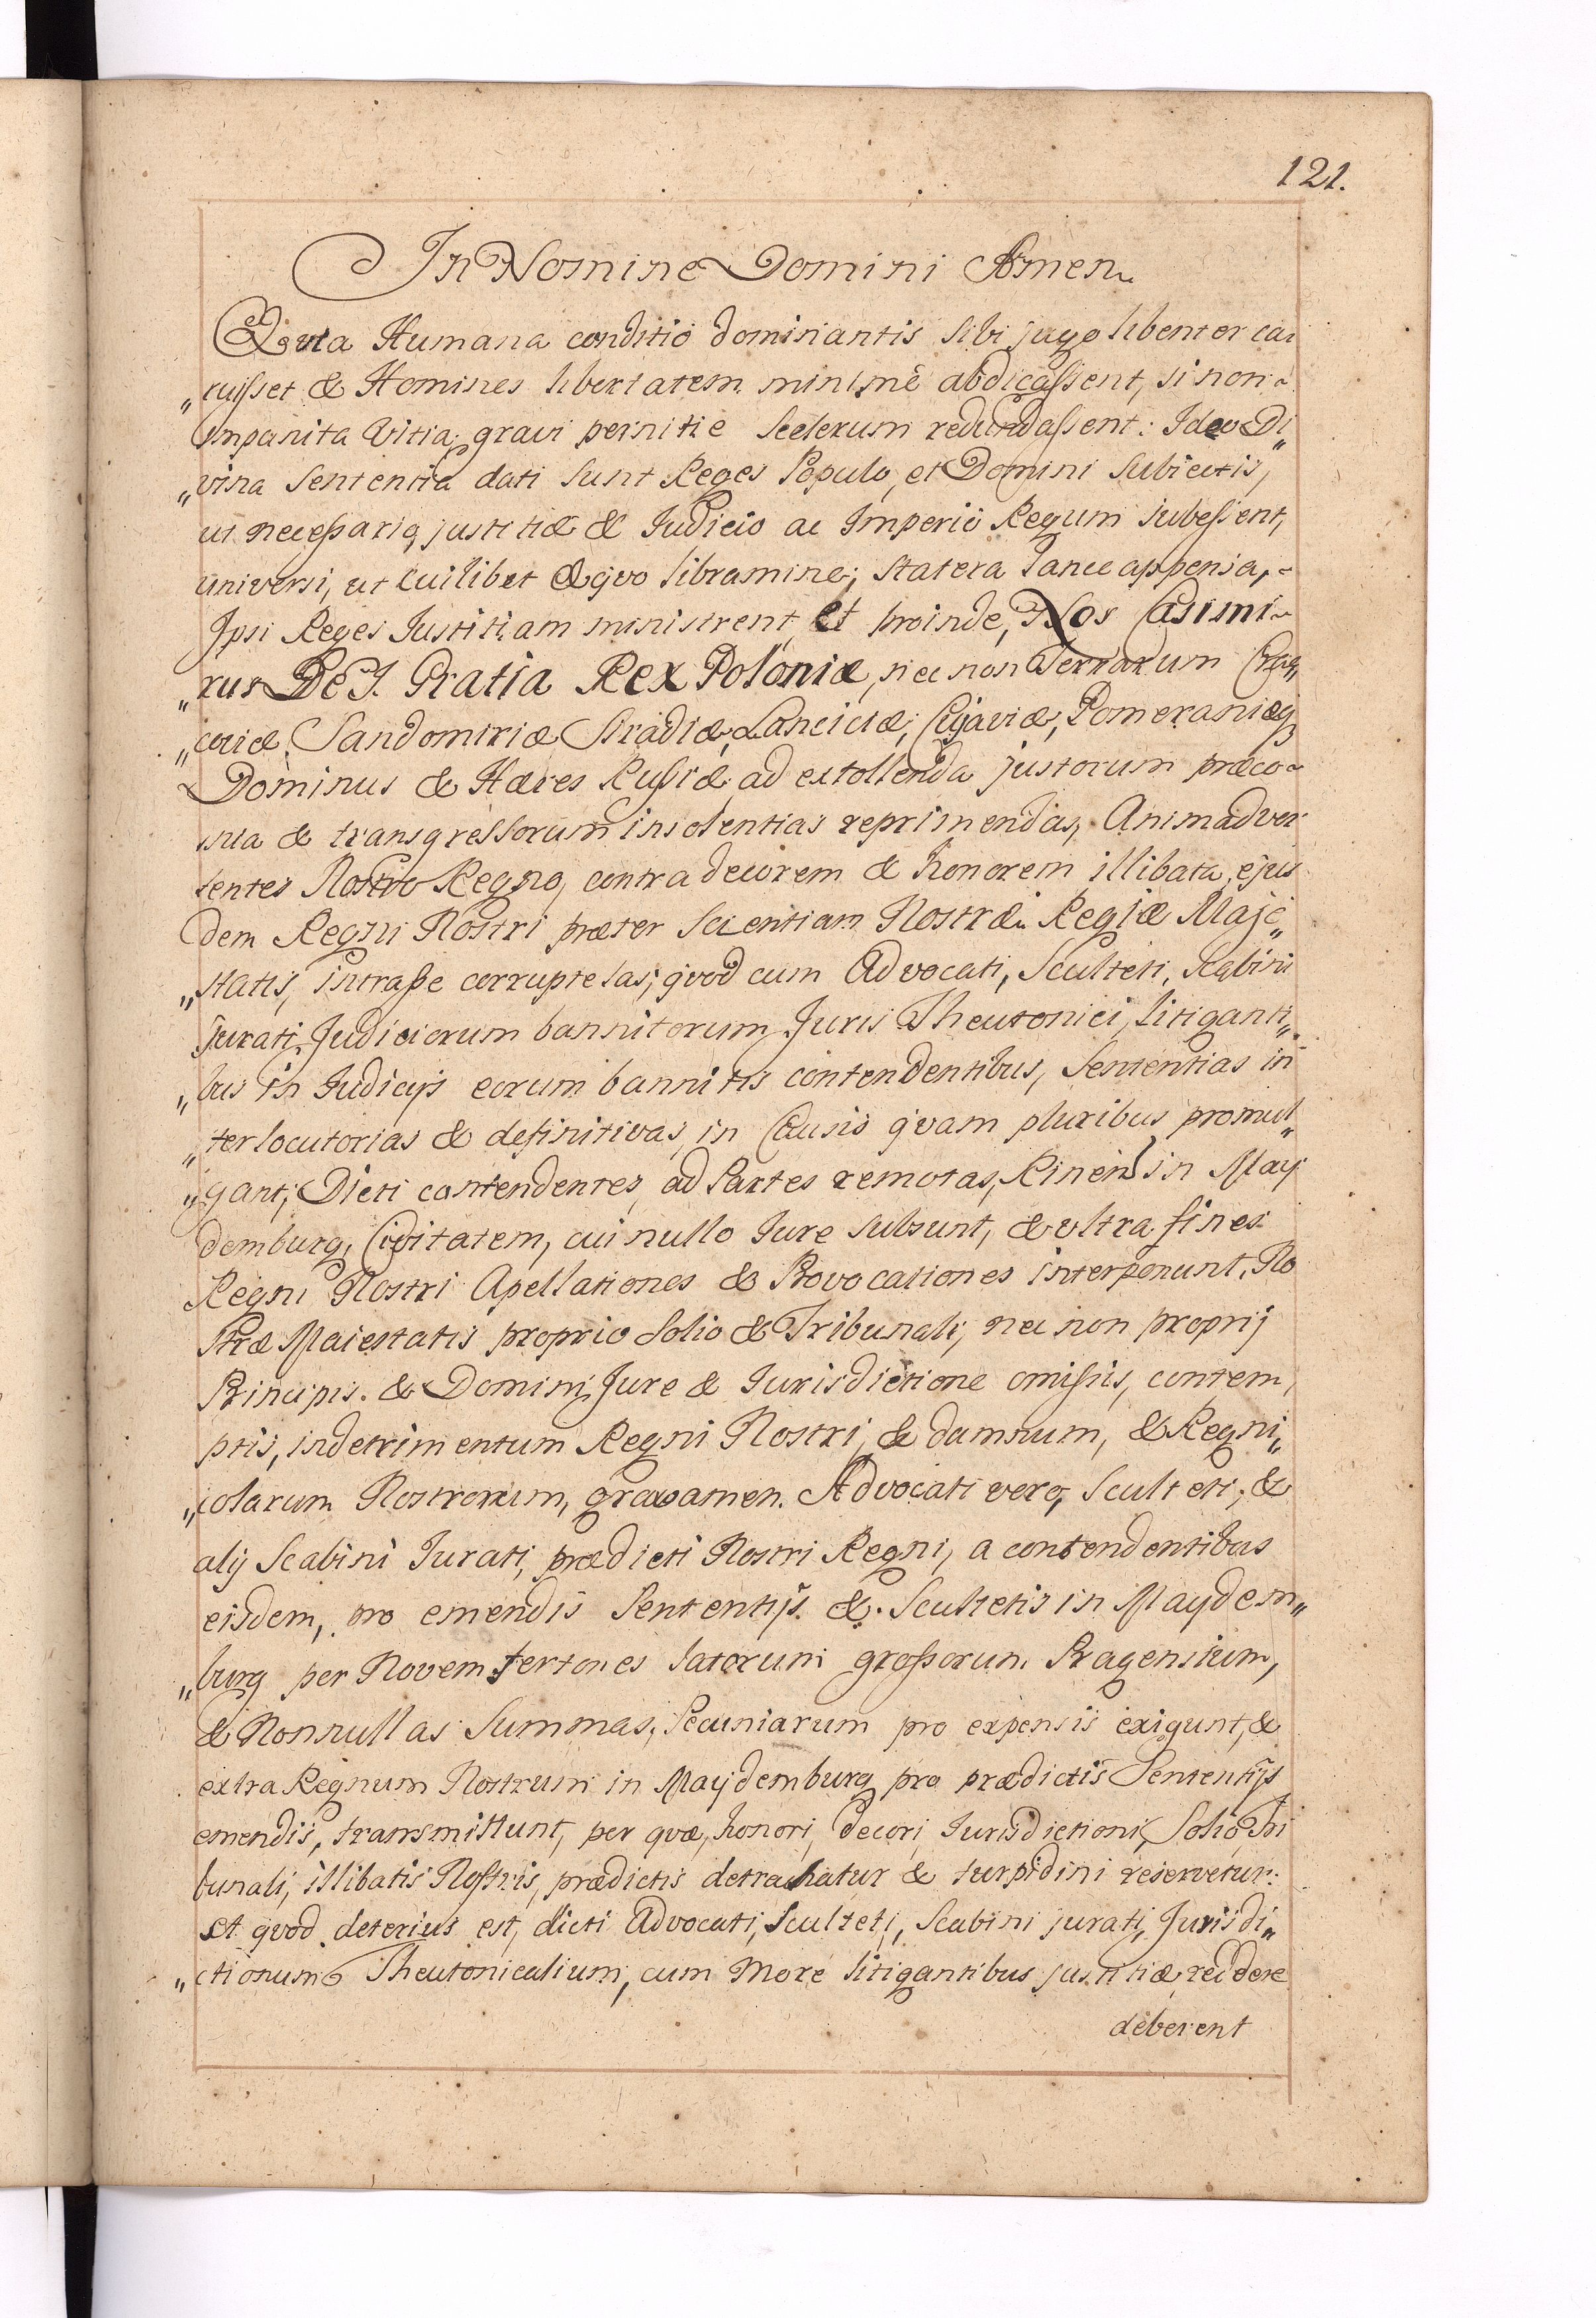 121.
In Nomine Domini Amen
Quia Humana conditio dominantis sibi jugo libenter ca
„ruisset & Homines libertatem minime abdicassent, si non
Impunita Vitia, gravi pernitie Scelerum redundassent: Ideo Di„
„vina Sententia dati sunt Reges Populo, et Domini Subiectis,
ut necessariæ justitiæ & Iudicio ac Imperio Regum subessent,
universi, ut Cuilibet Æqvo libramine, statera lance appensa,
Ipsi Reges Iustitiam ministrent, Et proinde, Nos Casimi-
„rus DeI. Gratia Rex Poloniæ, nec non Terrarum Cra„
„coviæ, Sandomiriæ Siradiæ, Lanciciæ, Cujaviæ, Pomeraniæq
Dominus & Hæres Russiæ ad extollenda justorum præco-
nia & transgressorum insolentias reprimendas, Animadver
tentes Nostro Regno, contra decorem & honorem illibata, ejus
dem Regni Nostri præter Scientiam Nostræ Regiæ Maje„
„statis, intrasse corruptelas, qvod cum Advocati, Sculteti, Scabini
Jurati, Judiciorum bannitorum Juris Theutonici, litiganti„
„bus in Iudicijs eorum bannitis contendentibus, Sententias in
„terlocutorias & definitivas, in Causis qvam pluribus promul„
„gant, Dicti contendentes, ad Partes remotas, in May
demburg, Civitatem, cui nullo Iure subsunt, & ultra fines
Regni Nostri Apellationes & Provocationes interponunt, No
stræ Maiestatis proprio Solio & Tribunali, nec non proprij
Principis. & Domini, Jure & Iurisdictione omissis, contem,
ptis, in detrimentum Regni Nostri, & damnum, & Regni„
„colarum Nostrorum, gravamen. Advocati vero, Sculteti, &
alij Scabini Iurati, prædicti Nostri Regni, a contendentibus
eisdem, pro emendis Sententijs &. Scultetis in Maydem„
„burg per Novem fertones latorum grossorum Pragensium,
& Nonnullas Summas, Pecuniarum pro expensis exigunt, &
extra Regnum Nostrum in Maydemburg pro prædictis Sententijs
emendis, transmittunt, per qvæ, honori, decori, Iurisdictioni, Solio Tri
bunali, illibatis Nostris, prædictis detrahatur & turpidini reservetur:
et qvod deterius est, dicti Advocati, Sculteti, Scabini jurati, Jurisdi„
„ctionum Theutonicalium, cum More litigantibus justitiæ reddere
deberent